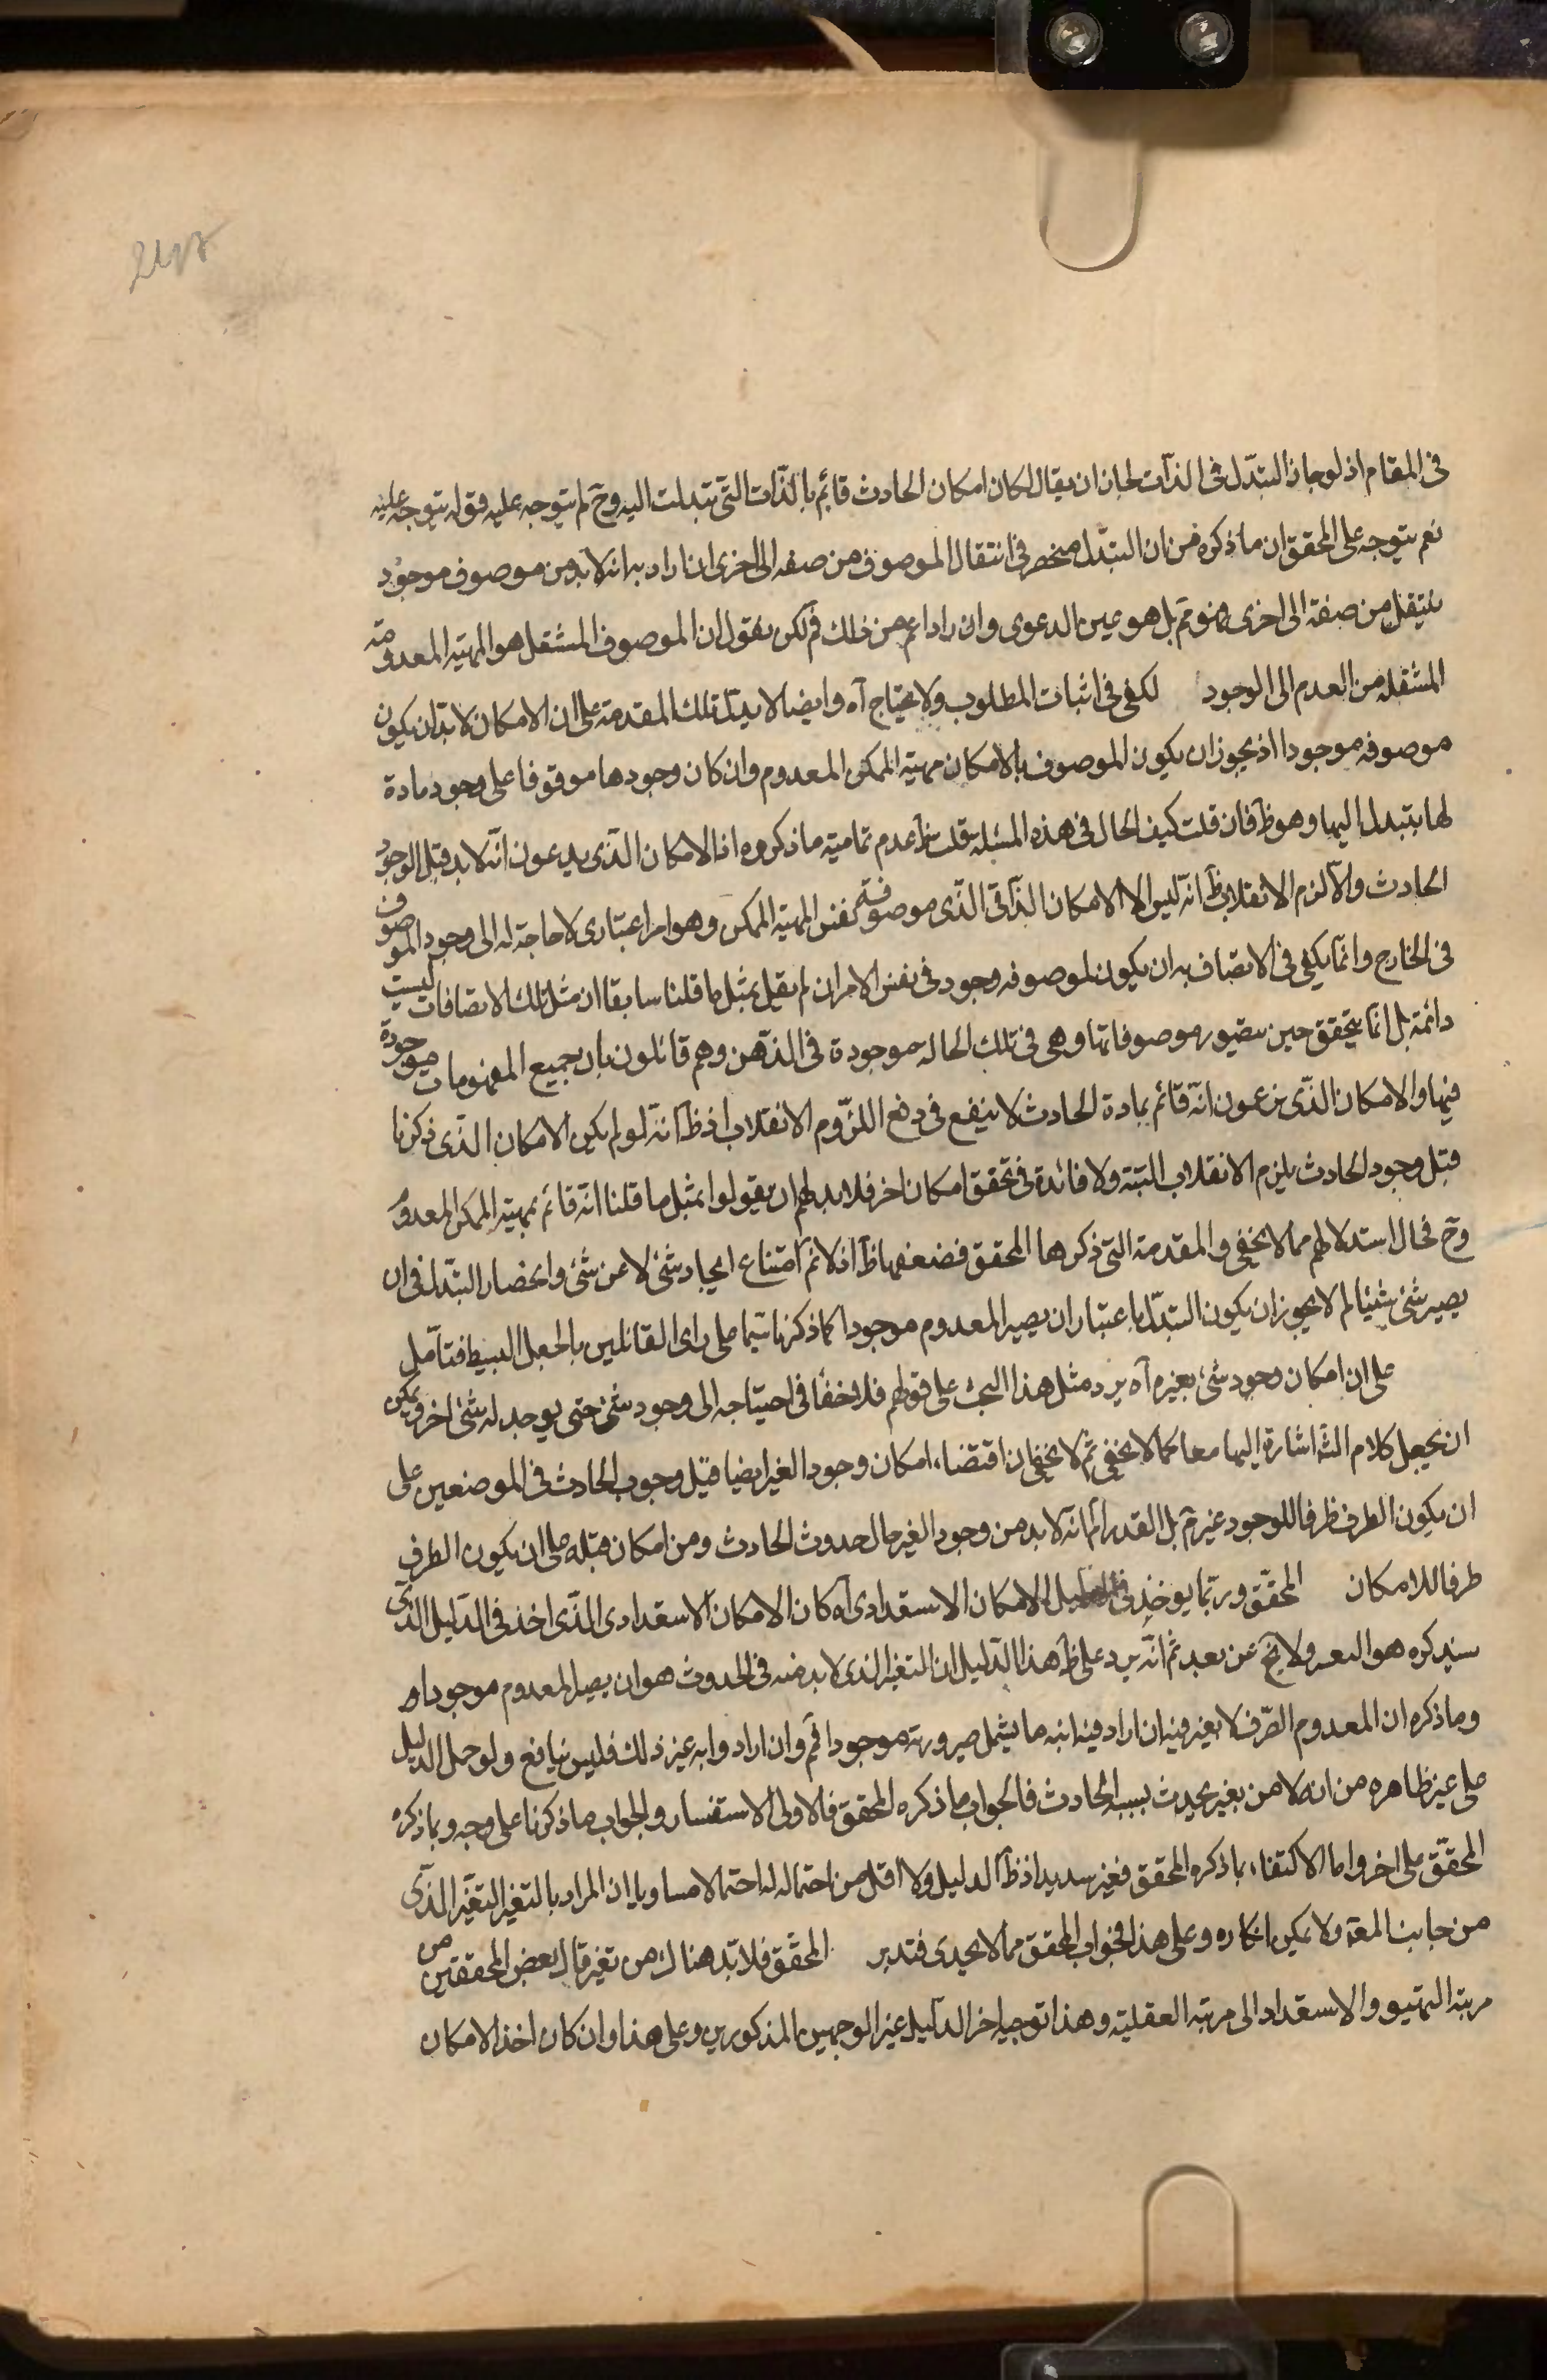 في المقام اذ لو جاز التبدّل في الذات لجاز ان يقال لكان امكان الحادث قائم بالذّات التّي تبدلت اليه وح لم يتوجه عليه قوله يتوجه عليه
نعم يتوجه على المحقق ان ما ذكره من ان التبدّل منحصر في انتقال الموصوف من صفه الى اخرى ان اراد به انه لا بد من موصوف موجود
ينتقل من صفة الى اخرى فهو مم بل هو عين الدعوى وان اراد اعم من ذلك فم لكن نقول ان الموصوف المنتقل هو المهية المعدومة
المنتقله من العدم الى الوجود لكفى في اثبات المطلوب ولا يحتاج آه وايضا لا يدل تلك المقدمة على ان الامكان لا بد ان يكون
موصوفه موجودا اذ يجوز ان يكون الموصوف بالامكان مهية الممكن المعدوم وان كان وجودها موقوفا على وجود مادة
لها يتبدل اليها وهو ظ فان قلت كيف الحال في هذه المسئله قلت ظ عدم تمامية ما ذكروه اذ الامكان الذّي يدعون انّه لا بد قبل الوجود
الحادث والاّ لزم الانقلاب ظ انّه ليس الا الامكان الذّاتي الذّي موصوفه نفس المهية الممكن وهو امر اعتباري لا حاجة له الى وجود الموصوف
في الخارج وانّما يكفي في الاتصاف به ان يكون لموصوفه وجود في نفس الامر ان لم نقل بمثل ما قلنا سابقا ان مثل تلك الاتصافات ليست
دائمة بل انّما يتحقق حين يتصور موصوفاتها وهي في تلك الحاله موجودة في الذّهن وهم قائلون بان جميع المفهومات موجودة
فيها والامكان الذّي يزعمون انّه قائم بمادة الحادث لا ينفع في دفع اللزّوم الانقلاب اذ ظ انّه لو لم يكن الامكان الذّي ذكرنا
قبل وجود الحادث يلزم الانقلاب البتة ولا فائدة في تحقق امكان اخر فلا بد لهم ان يقولوا بمثل ما قلنا انّه قائم بمهية الممكن المعدوم
وح فحال استدلالهم مما لا يخفى والمقدمة التي ذكرها المحقق فضعفها ظ اذ لا نم امتناع ايجاد شئ لا عن شئ وانحصار التبدّل في ان
يصير شئ شيئا لم لا يجوز ان يكون التبدّل باعتبار ان يصير المعدوم موجودا كما ذكرنا سيّما على راى القائلين بالجعل البسيط فتامّل
على ان امكان وجود شئ بغيره آه يرد مثل هذا البحث على قولهم فلا خفا في احتياجه الى وجود شئ حتى يوجد له شئ اخر ويمكن
ان يجعل كلام الشّ اشارة اليها معا كما لا يخفى ثم لا يخفى ان اقتضاء امكان وجود الغير ايضا قبل وجوب الحادث في الموضعين على
ان يكون الطرف ظرفا للوجود غير م بل القدر انّه لا بد من وجود الغير حال حدوث الحادث ومن امكان قبله على ان يكون الطرف
ظرفا للامكان المحقّق وربّما يوخذ في الامكان الاستعدادى آه كان الامكان الاستعدادى الذّى اخذ في الدّليل الذّى
سنذكره هو ولا يخ عن بعد ثم انّه يرد على ظ هذا الدّليل ان التغير الذى لا بد منه في الحدوث هو ان يصير المعدوم موجودا
وما ذكره ان المعدوم الصّرف لا يغير فيه ان اراد فيه انبه ما يشمل صيرورته موجودا فم وان اراد وا به غير ذلك فليس بنافع ولو حمل الدليل
على غير ظاهره من انه لا من بغير يحدث بسبب الحادث فالجواب ما ذكره المحقق فالاولى الاستفسار والجواب ما ذكرنا على وجه وبما ذكره
المحقّق على اخر واما الاكتفاء بما ذكره المحقق فغير سديد اذ ظ الدليل ولا اقل من احتماله له احتمالا مساويا ان المراد بالتغير التغيّر الذّى
من جانب المعد ولا يمكن انكاره وعلى هذا فجواب المحقق مما لا يجدى فتدبر المحقّق فلا بّد هناك من تغير قال بعض المحققين من
مرتبة التهيؤ والاستعداد الى مرتبة العقلية وهذا توجيه اخر الدّليل غير الوجهين المذكورين وعلى هذا وان كان اخذ الامكان